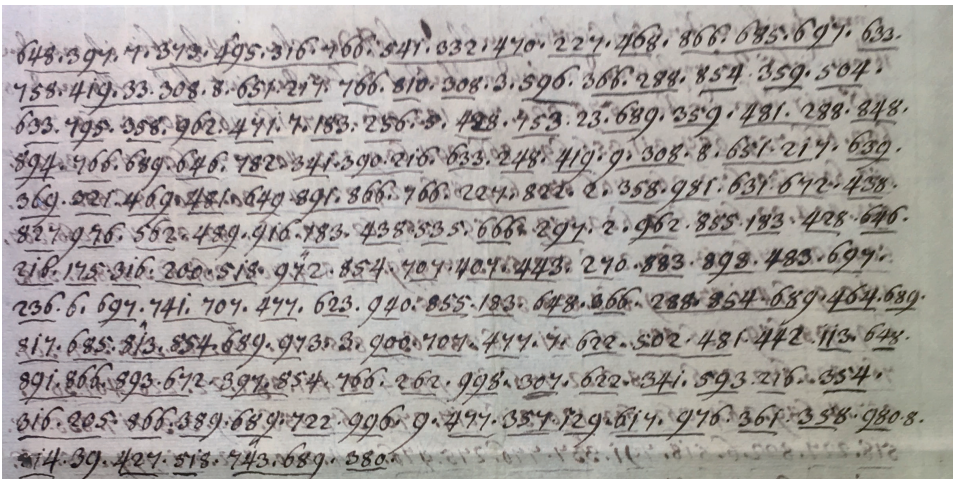 648. 397. 7. 373. 495. 316. 766. 541. 332. 470. 227. 468. 866. 685. 697. 633.
758. 419. 33. 308. 8. 651. 217. 766. 810. 308. 3. 596. 366. 288. 854. 359. 504.
633. 795. 358. 962. 471. 7. 183. 256. 3. 428. 753. 23. 689. 359. 481. 288. 848.
894. 766. 689. 646. 782. 341. 390. 216. 633. 248. 419. 9. 308. 8. 651. 217. 639.
369. 221. 469. 481. 649. 891. 866. 766. 227. 822. 2. 358. 981. 631. 672. 438.
827. 976. 562. 489. 916. 783. 438. 535. 666. 297. 2. 962. 855. 183. 428. 646.
216. 175. 316. 200. 518. 972. 854. 707. 407. 443. 270. 883. 898. 483. 697.
236. 6. 697. 741. 707. 477. 623. 940. 855. 183. 648. 366. 288. 854. 689. 464. 689.
817. 685. 813. 854. 689. 973. 3. 900. 707. 477. 7. 622. 502. 481. 442. 113. 648.
891. 866. 893. 672. 397. 854. 766. 262. 998. 307. 622. 341. 593. 216. 354.
316. 205. 866. 389. 689. 722. 996. 9. 477. 357. 129. 617. 976. 361. 358. 980. 8.
39. 427. 518. 743. 689. 380.